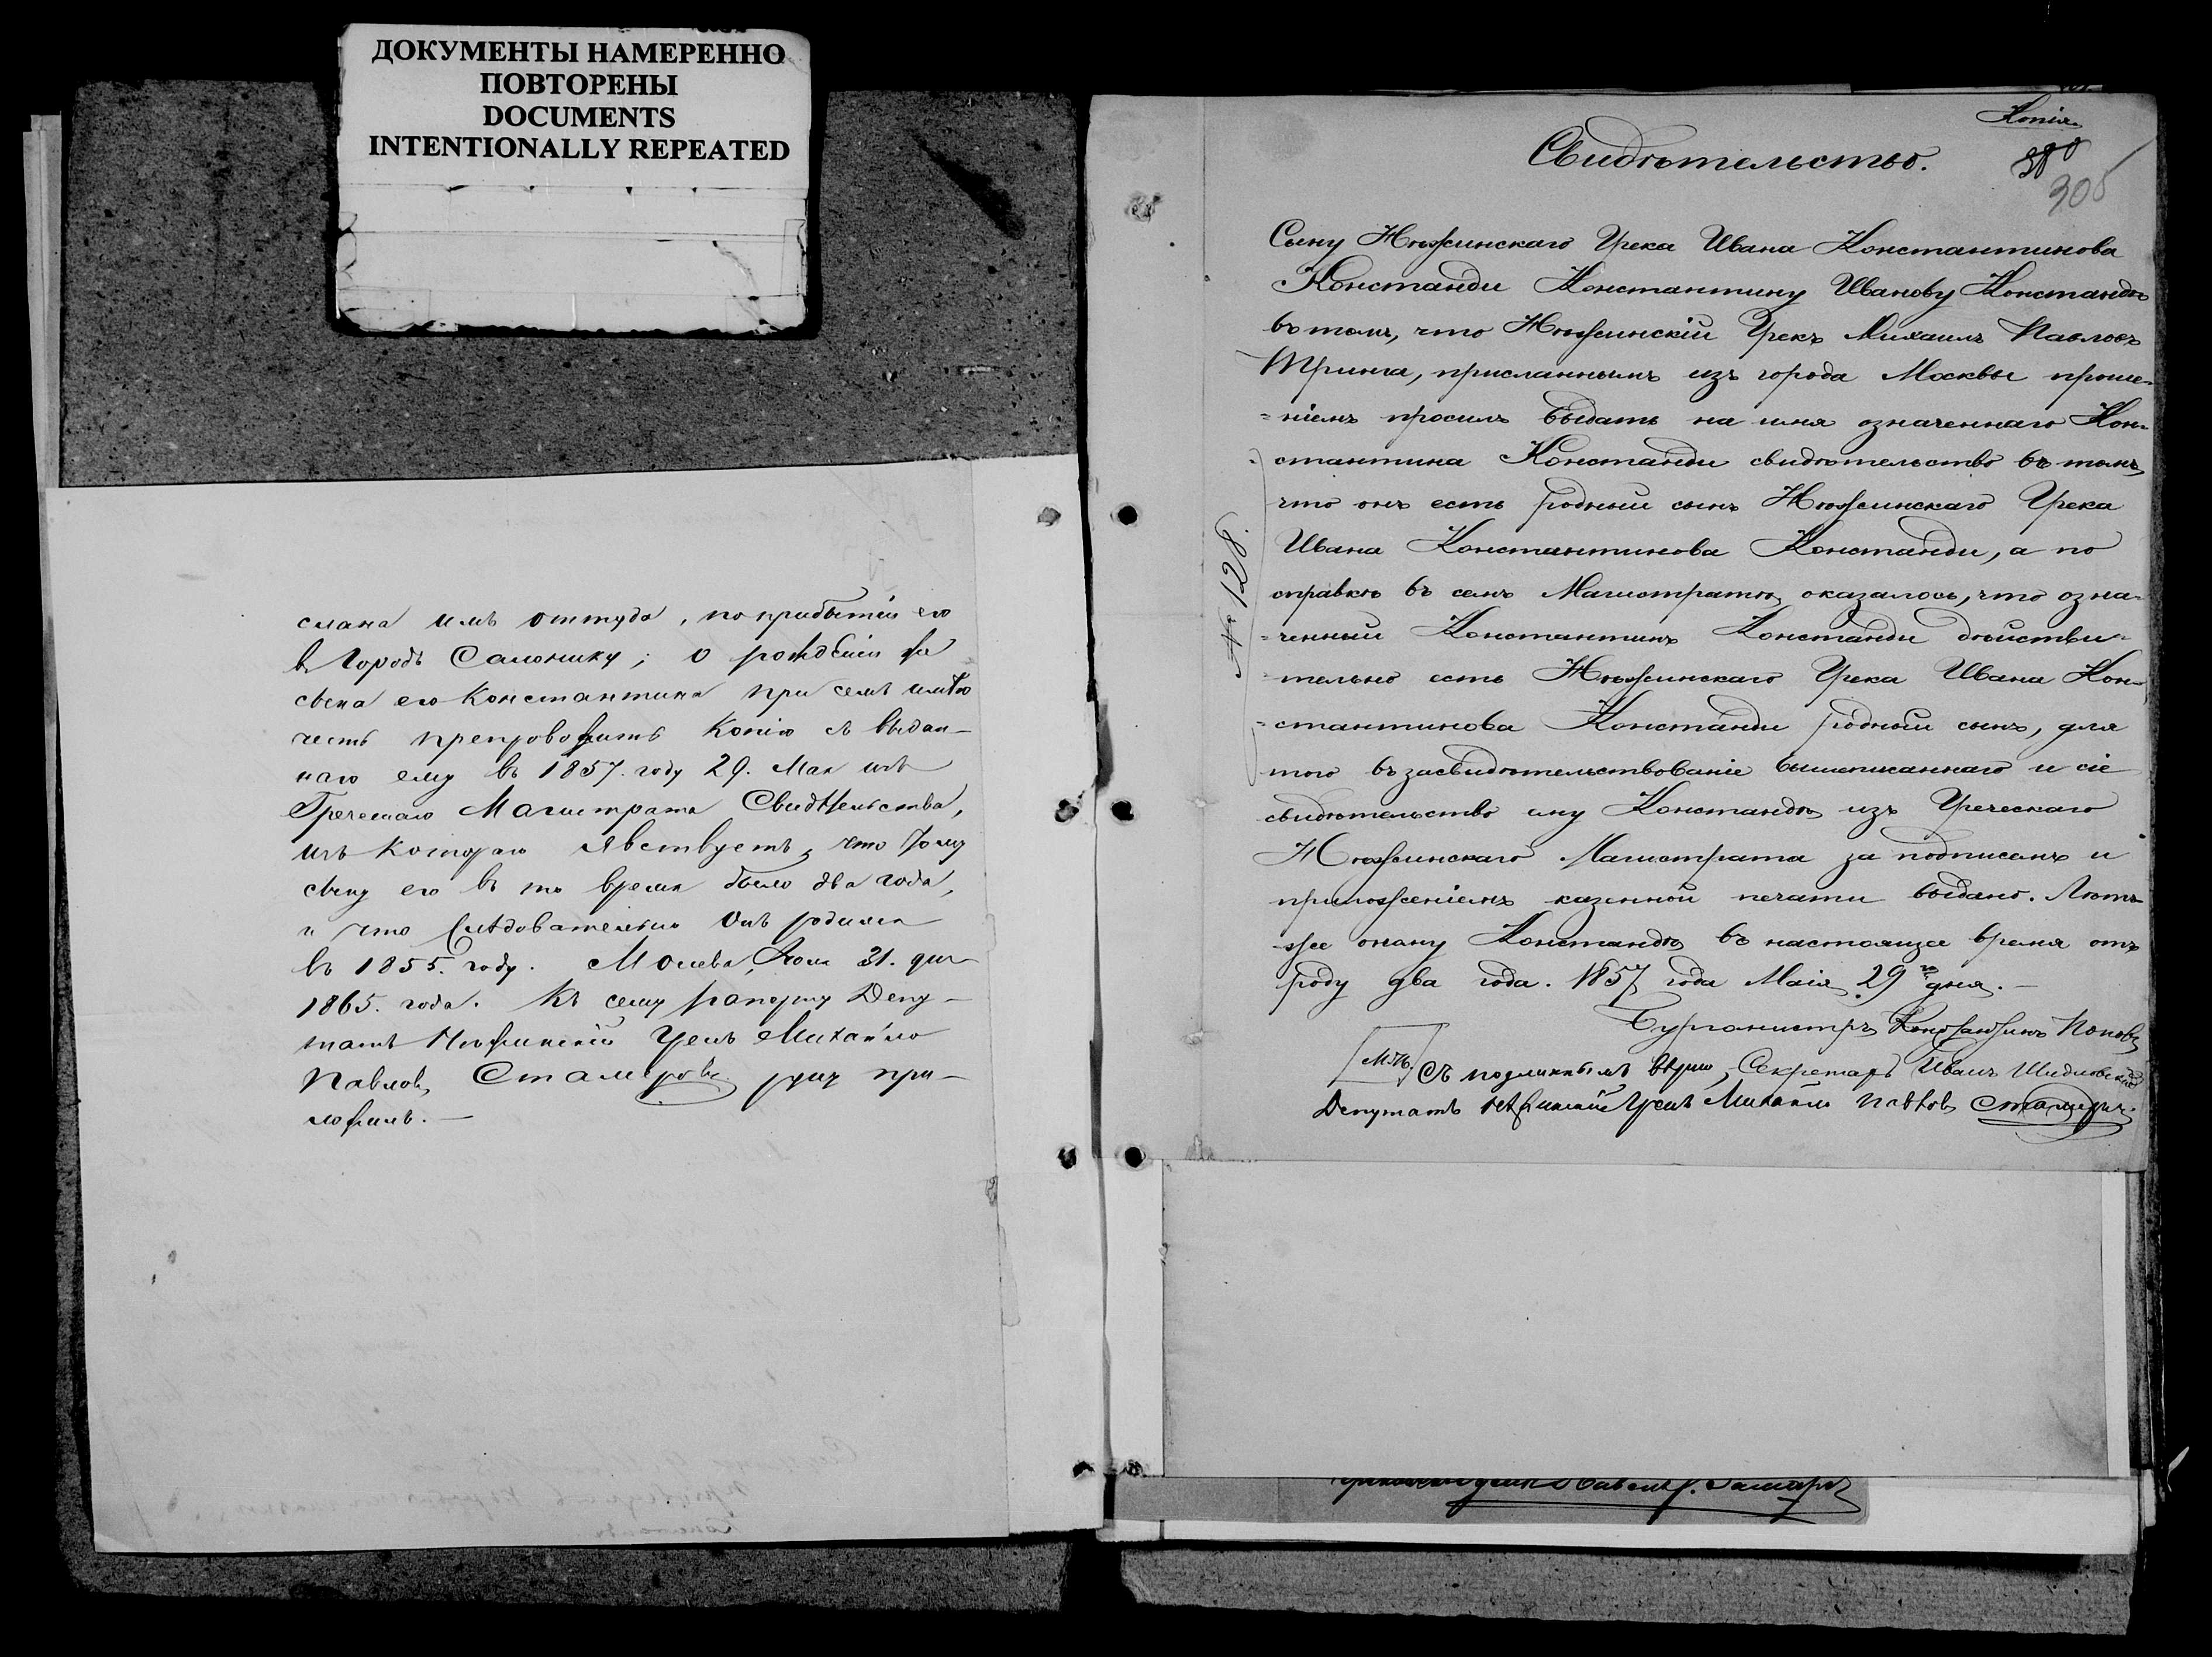 ДОКУМЕНТЫ НАМЕРЕННО
ПОВТОРЕНЫ
DOCUMENTS
INTENTIONALLY REPEATED
слана имъ оттуда, по прибытіи его
въ Городъ Салонику; о рожденіи же
сына его Константина при семъ имѣю
честь препроводить Копію съ выдан-
наго ему въ 1857. году 29. Мая изъ
Греческаго Магистрата Свидѣтельства,
изъ котораго явствуетъ, что тому
сыну его въ то время было два года,
и что слѣдовательно онъ родился
въ 1855. году. Москва, Іюля 31. дня
1865. года. Къ сему рапорту Депу-
татъ Нѣжинскій Грекъ Михайло
Павловъ руку при-
ложилъ.
Копія
Свидѣтельство.
305
Сыну Нѣжинскаго Грека Ивана Константинова
Констанди Константину Иванову Констандѣ
въ томъ, что Нѣжинскій Грекъ Михаилъ Павловъ
Тринга, присланнымъ изъ города Москвы проше-
=ніемъ просилъ выдать на имя означеннаго Кон-
стантина Констанди свидѣтельство въ томъ,
что онъ есть родный сынъ Нѣжинскаго Грека
Ивана Константинова Констанди, а по
справкѣ въ семъ Магистратѣ оказалось, что озна-
=ченный Константинъ Констанди дѣйстви-
=тельно есть Нѣжинскаго Грека Ивана Кон-
=стантинова Констанди родный сынъ, для
того въ засвидѣтельствованіе вышеписаннаго и сіе
свидѣтельство ему Констандѣ изъ Греческаго
Нѣжинскаго Магистрата за подписемъ и
приложеніемъ казенной печати выдано. Лѣтъ
же оному Констандѣ въ настоящее время отъ
роду два года. 1857 года Маія 29 го дня.-
№ 128.
Бургомистръ Константинъ Поповъ
М.П. Съ подлиннымъ вѣрно, Секретарь Иванъ
Депутатъ Нѣжинскій Грекъ Михаилъ Павловъ